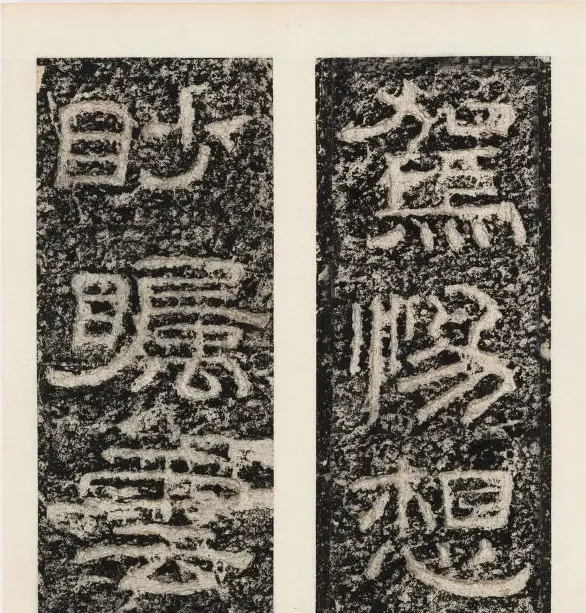 駕惕想
眇矚雲